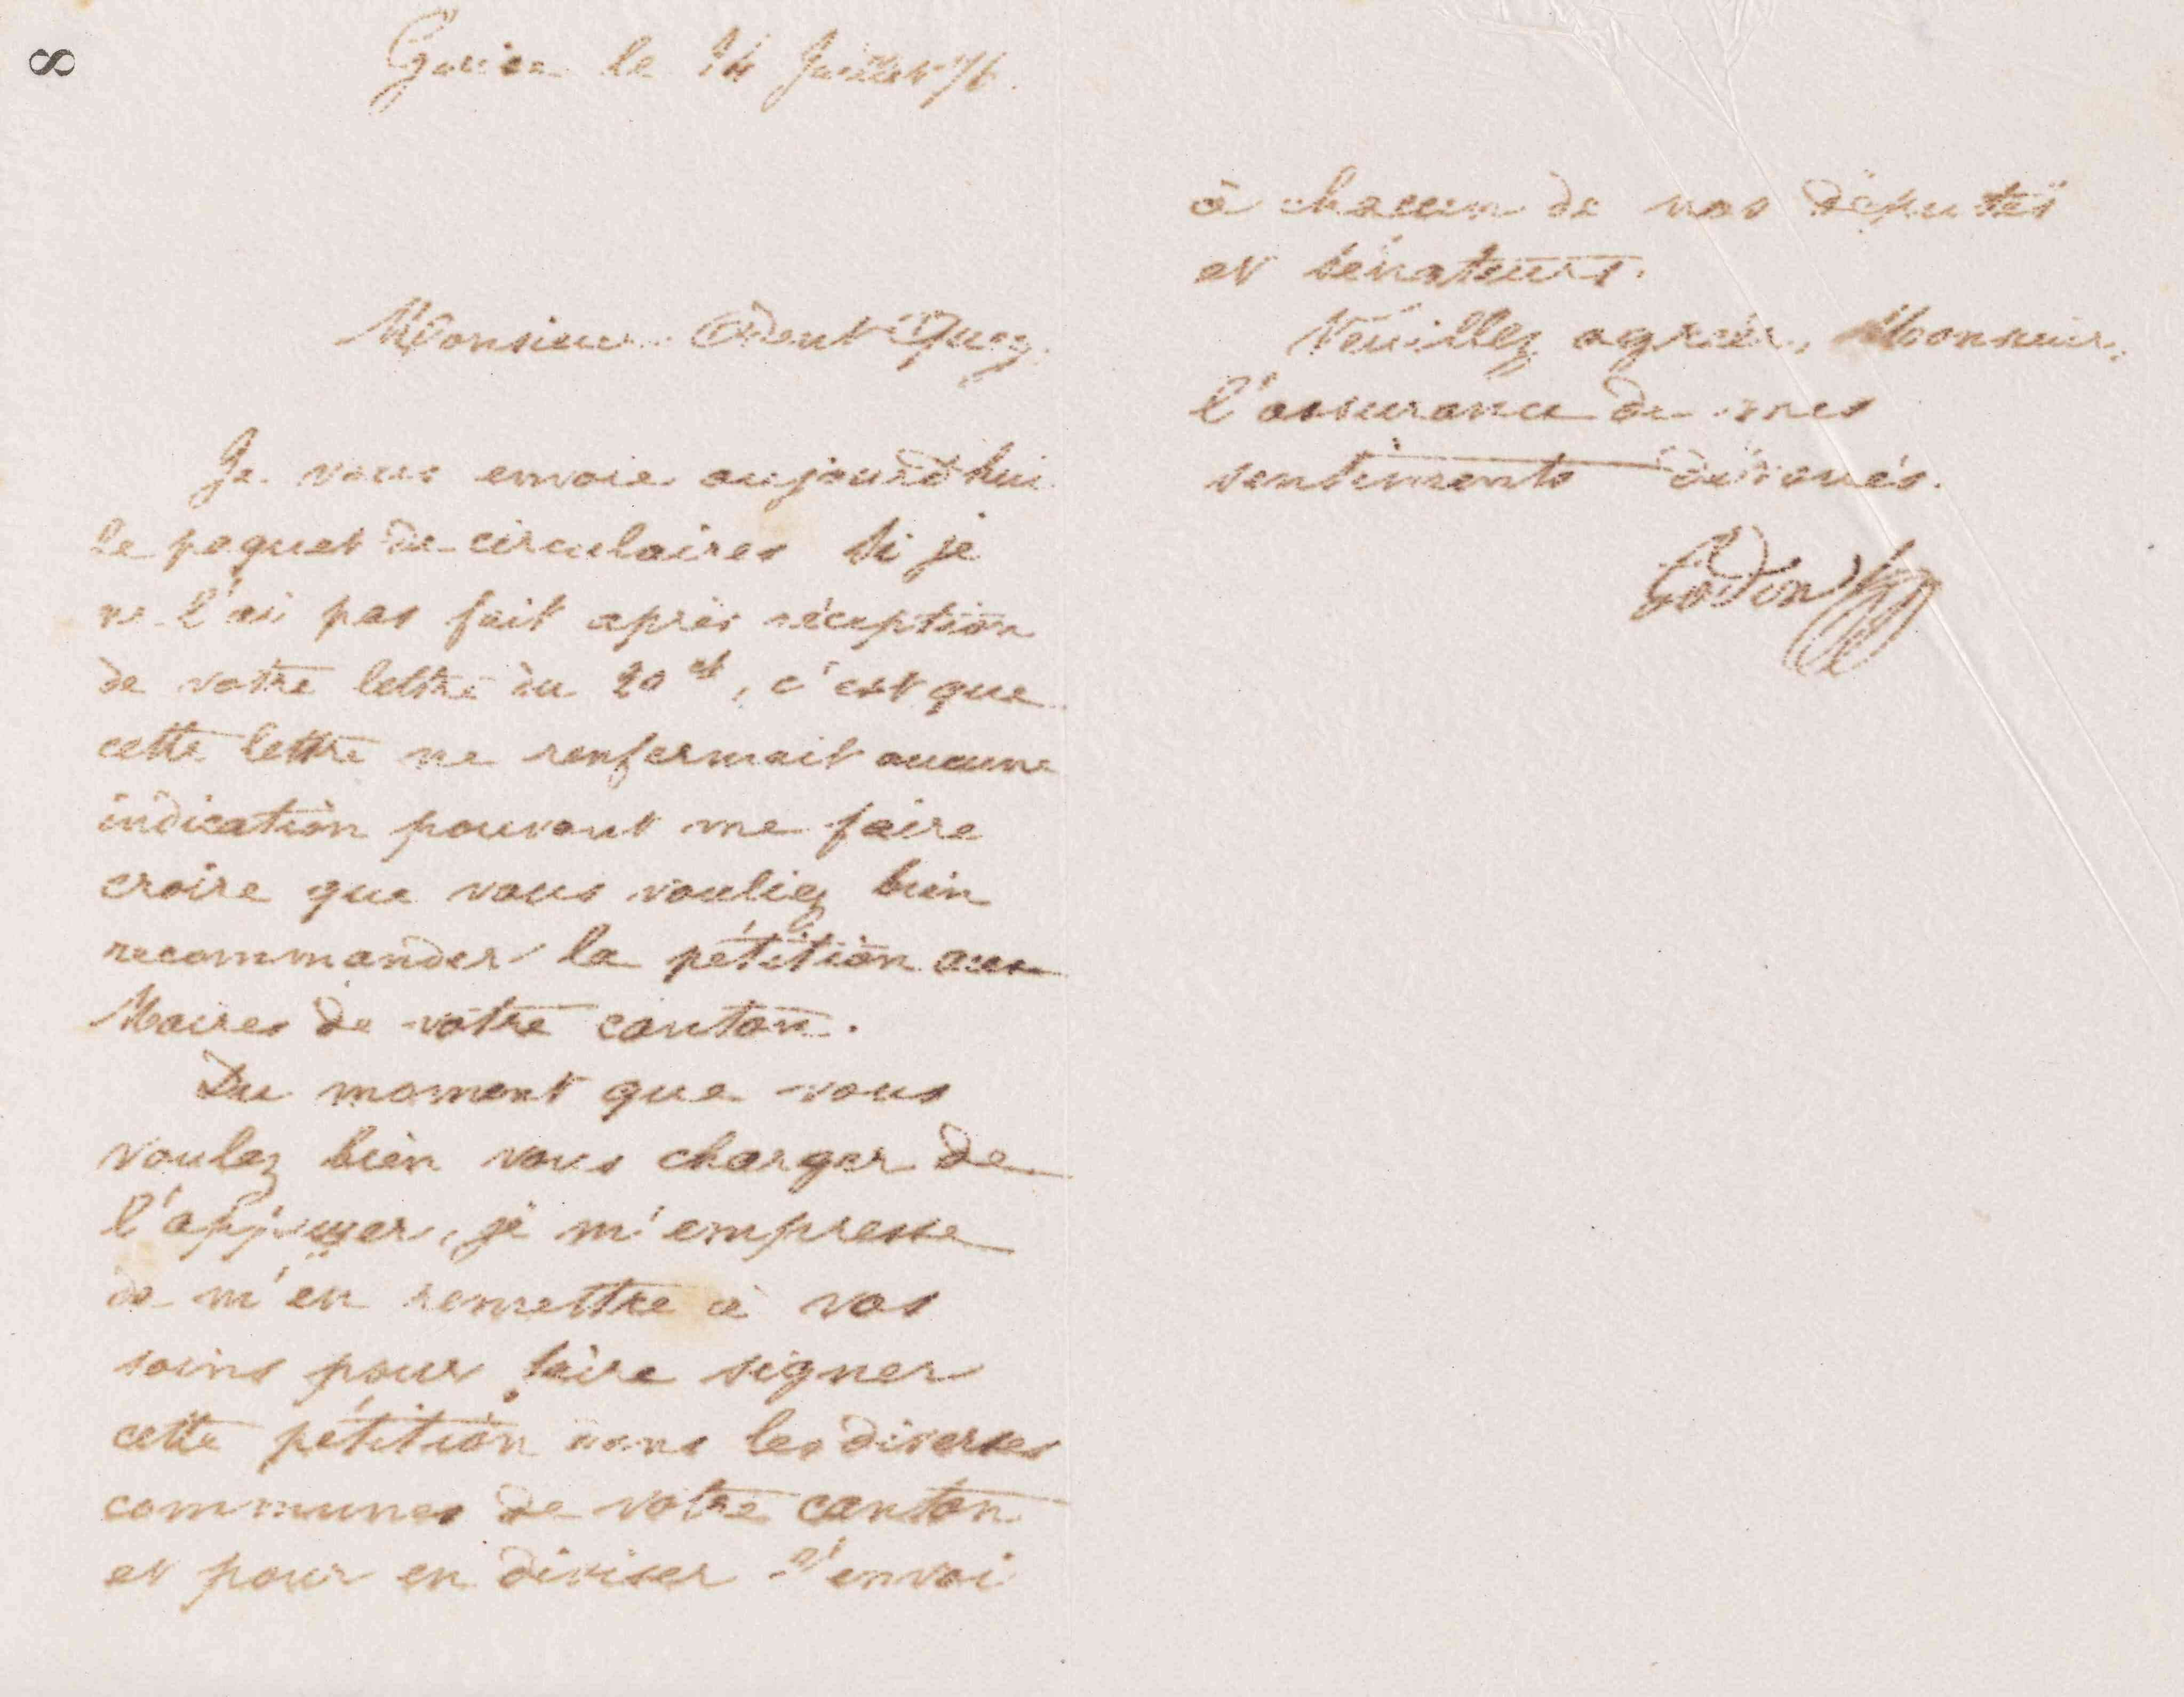 8
Guise le 24 Juillet 76.
Monsieur
Je vous envoie aujourd'hui
le paquet de circulaires si je
ne l'ai pas fait après réception
de votre lettre du 20 ct, c'est que
cette lettre ne renfermait aucune
indication pouvant me faire
croire que vous vouliez bien
recommander la pétition aux
Maires de votre canton.
Du moment que vous
voulez bien vous charger de
l'appuyer, je m'empresse
de m'en remettre à vos
soins pour faire signer
cette pétition dans les diverses
communes de votre canton
et pour en diviser l'envoi
à chacun de nos députés
et sénateurs.
Veuillez agréer, Monsieur,
l'assurance de mes
sentiments dévoués.
Godin